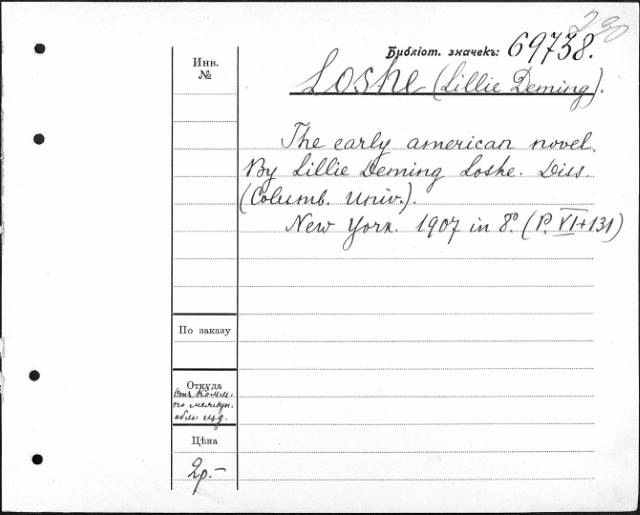 230
Библіот. значекъ: 69738.
Инв.
№
Loshe (Lillie Deming).
The early american novel.
By Lillie Deming Loshe. Diss.
(Columb. Univ.).
New York. 1907 in 8º. (P. VI+131)
По заказу
Откуда
отъ Комм.
по междун.
обм. изд.
Цѣна
2р.-